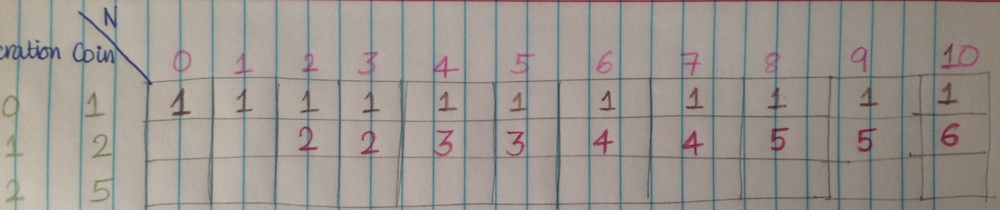 N
Coin 0 1 2 3 4 5 6 7 8 9 10
0 1 1 1 1 1 1 1 1 1 1 1 1 1
1 2 2 2 3 3 4 4 5 5 6
2 5